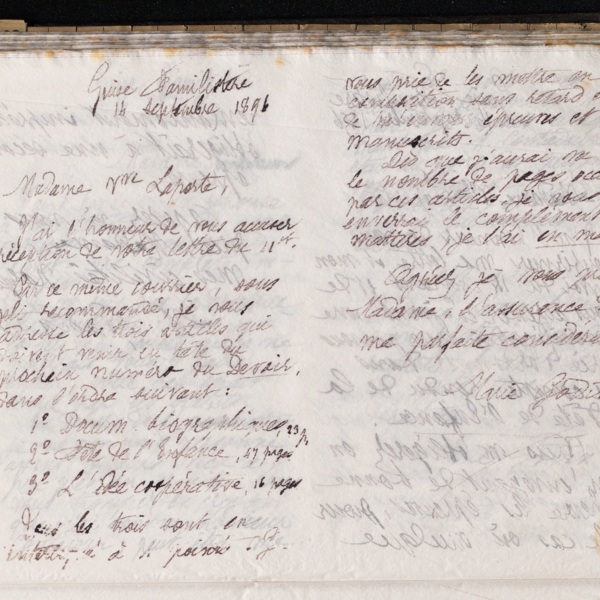 Guise Familistère
14 septembre 1896
Madame Vve Laporte,
J'ai l'honneur de vous accuser
réception de votre lettre du 11 ct.
Par ce même courrier, sous
pli recommandé, je vous
adresse les trois articles qui
doivent venir en tête du
prochain numéro du Devoir,
dans l'ordre suivant :
1º Docum. biographiques, 23 p.
2º Fête de l'Enfance, 47 pages
3º L'idée coopérative, 16 pages
les trois sont en
à
vous prie de les mettre en
composition sans retard
de épreuves et
manuscrits.
Dès que j'aurai vu
le nombre de pages occ
par ces articles, je vous
enverrai le complément
matières, je l'ai en ma
Agréez, je vous
Madame, l'assurance
ma parfaite considéra
Marie